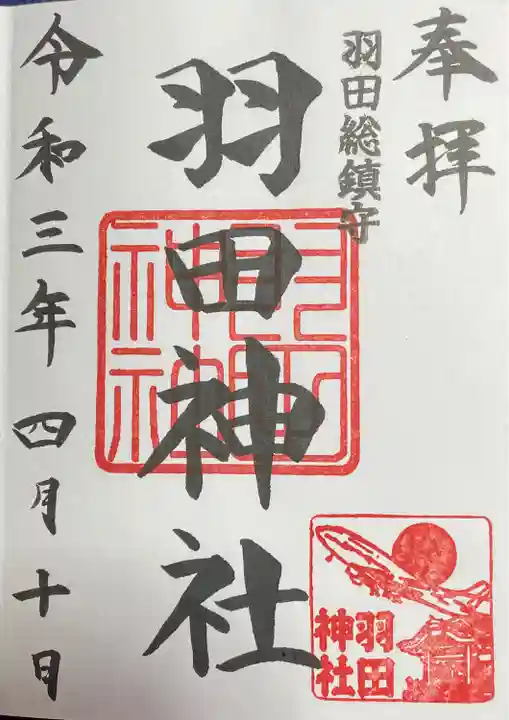 奉拝
羽田総鎮守
羽田神社
羽田
神社
羽田
神社
令和三年四月十日